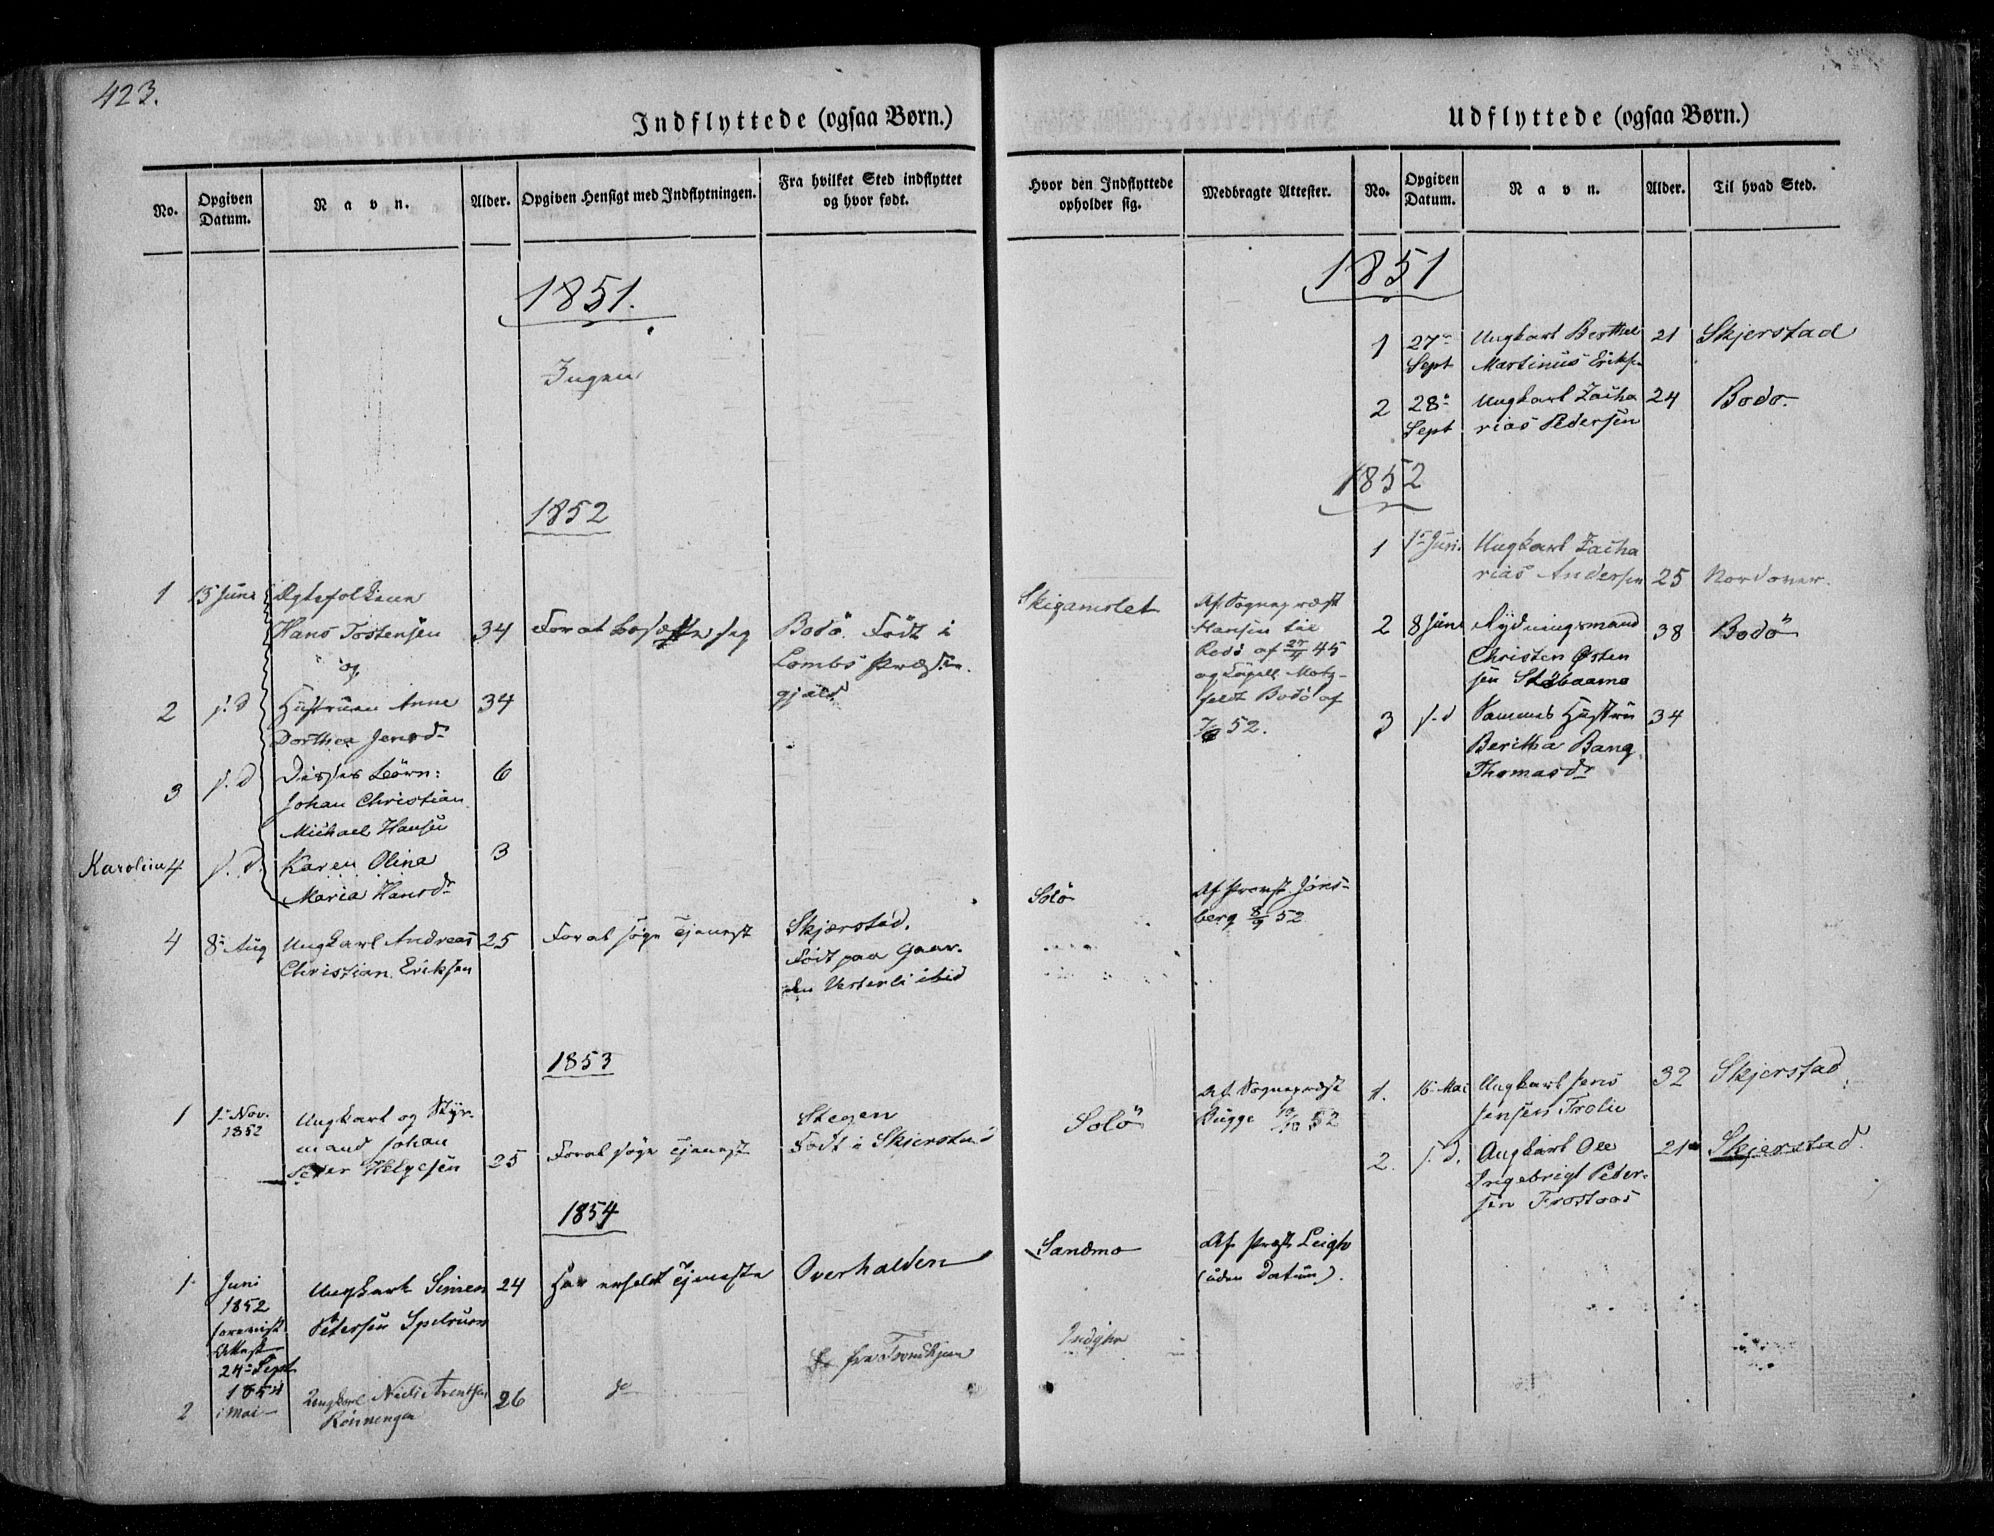 423.
Indflyttede (ogsaa Børn.)
No.
Opgiven
Datum.
Navn.
Alder.
Opgiven Hensigt med Indflytningen.
Fra hvilket Sted indflyttet
og hvor født.
1851.
Ingen
1852
1
15 Juni
Ægtefolkene
Hans Tostensen
34
For at bosætte sig
Bodö. Födt i
Lombs Præste-
gjæld
og
2
s. d
Hustruen Anne
34
Dorthea Jensdr
3
s. d
Disses Börn:
6
Johan Christian
Michael Hansen
Karolina
4
s. d.
Karen Olina
3
Maria Hansdr
4
8 Aug
Ungkarl Andreas
25
For at söge Tjeneste
Skjærstad.
Christian Eriksen
Födt paa Gaar-
den Vesterli ibid
1853
1
1 Nov.
1852
Ungkarl og Styr-
mand Johan
Peder Helgesen
25
For at söge Tjeneste
Stegen
Födt i Skjerstad
1854
1
Juni
1852
forevist
Attest
24 Sept
1854
Ungkarl Simen
24
Har erholdt Tjeneste
Overhalden
Petersen Spelrum
2
i Mai
Ungkarl Nicls Arentsen
Rönningen
26
do
fra Trondhjem
Udflyttede (ogsaa Børn.)
Hvor den Indflyttede
opholder sig.
Medbragte Attester.
No.
Opgiven
Datum.
Navn.
Alder.
Til hvad Sted.
1851
1
27
Sept
Ungkarl Berthel
Martinus Eriksen
21
Skjerstad
2
28
Sept
Ungkarl Zacha
rias Pedersen
24
Bodö.
1852
1
1 Juni
Ungkarl Zacha
rias Andersen
25
Nordover.
Af Sognepræst
Hansen til
Rodö af 27/4 45
og Capell. Motz-
feldt Bodö af
52.
2
8 Juni
Rydningsmand
Christen Østen
sen Stöbaamo
38
Bodö
3
s. d
Sammes Hustru
34
Beritha Bang
Thomasdr
Solö
Af Provst Jöns-
berg 8/9 52
1853
Solö
Af Sognepræst
Bugge 10/10 52
1.
16 Mai
Ungkarl Jens
Jensen Trolie
32
Skjerstad
2.
s. d.
Ungkarl Ole
Ingebrigt Peder-
sen Frostaas
21
Skjerstad
Sandmo
Af Præst Leigh
(uden Datum).
Indyhr